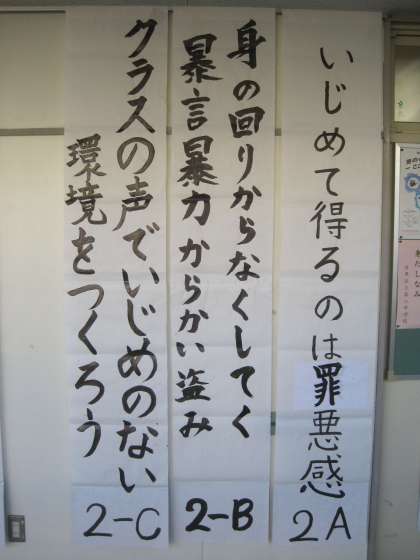 いじめて得るのは罪悪感
2A
身の回りからなくしてく
暴言暴力からかい盗み
2-B
クラスの声でいじめのない
環境をつくろう
2-C